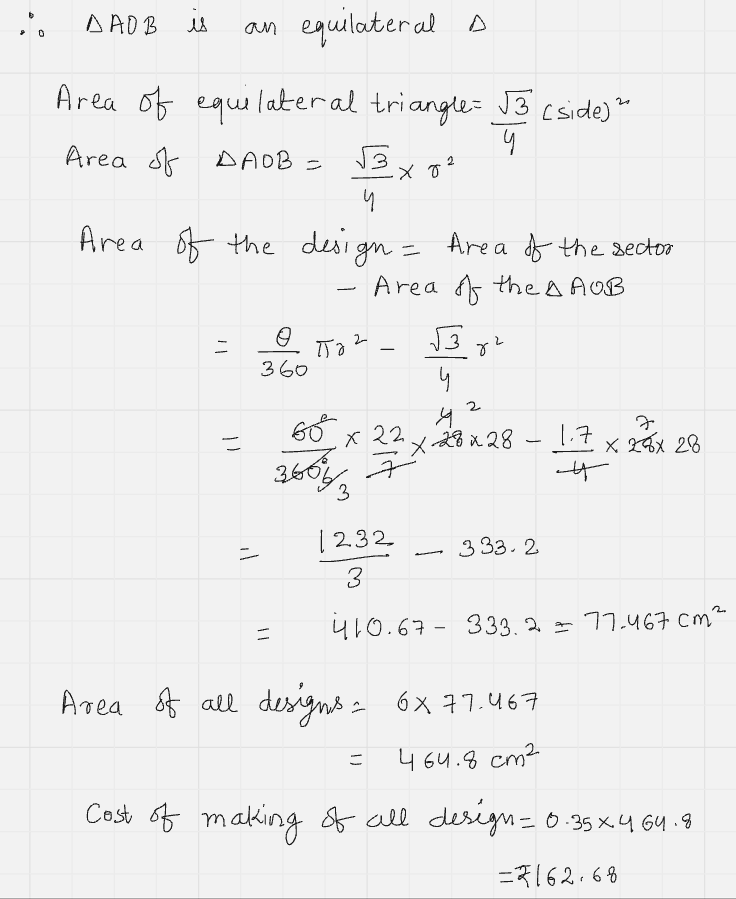 ∴ ΔAOB is an equilateral Δ
Area of equilateral triangle = √3/4 (side)²
Area of ΔAOB = √3/4 × r²
Area of the design = Area of the sector
– Area of the Δ AOB
= θ/360 πr² – √3/4 r²
= 60°/360° 6 3 × 22/7 × 28 4 2 × 28 – 1.7/4 × 28 7 × 28
= 1232/3 – 333.2
= 410.67 – 333.2 = 77.467 cm²
Area of all designs = 6 × 77.467
= 464.8 cm²
Cost of making of all design = 0.35 × 464.8
= ₹162.68